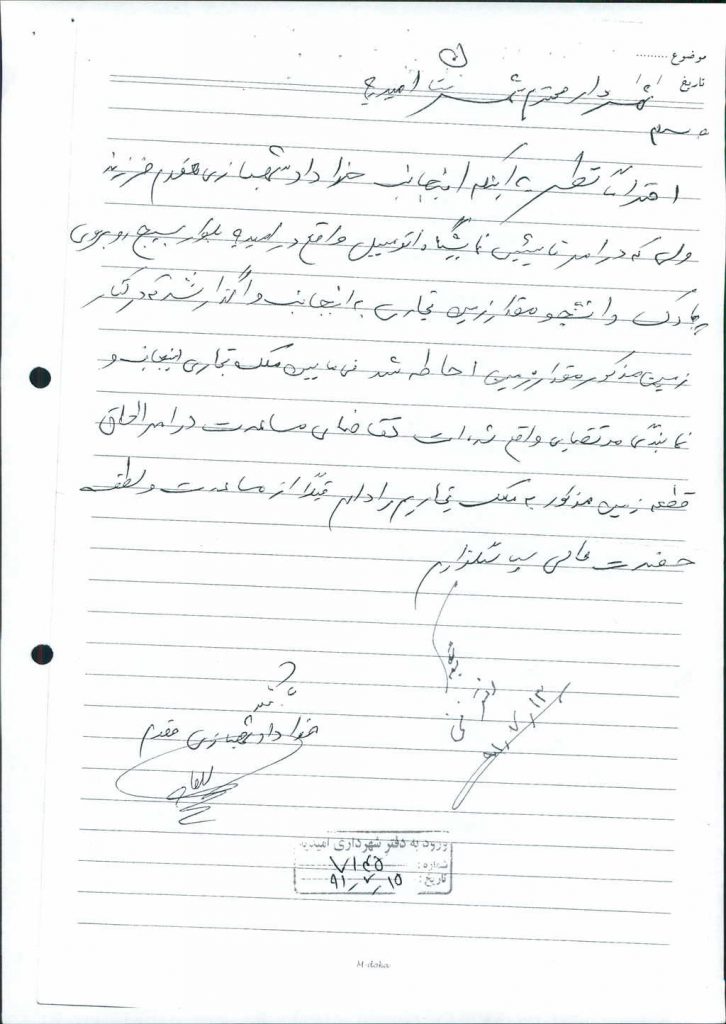 موضوع ..........
تاریخ
شهردار محترم شهرستان امیدیه
سلام
احتراماً نظر به اینکه اینجانب خداداد شهبازی مقدم فرزند
ولی که در امر تأسیس نمایشگاه اتومبیل واقع در امیدیه بلوار بسیج روبروی
پارک دانشجو مقدار زمین تجاری به اینجانب واگذار شد که در کنار
زمین مذکور مقدار زمین احاطه شد فی مابین ملک تجاری اینجانب و
نمایندگی مرتضایی واقع شده است تقاضای مساعدت در امر الحاق
قطعه زمین مذکور به ملک تجاریم را دارم قبلاً از مساعدت و لطف
حضرت عالی سپاسگزارم
۹۱/۷/۱۳
خداداد شهبازی مقدم
ورود به دفتر شهرداری امیدیه
شماره: ۷۱۴۵
تاریخ: ۹۱٫۷٫۱۵
M-doka